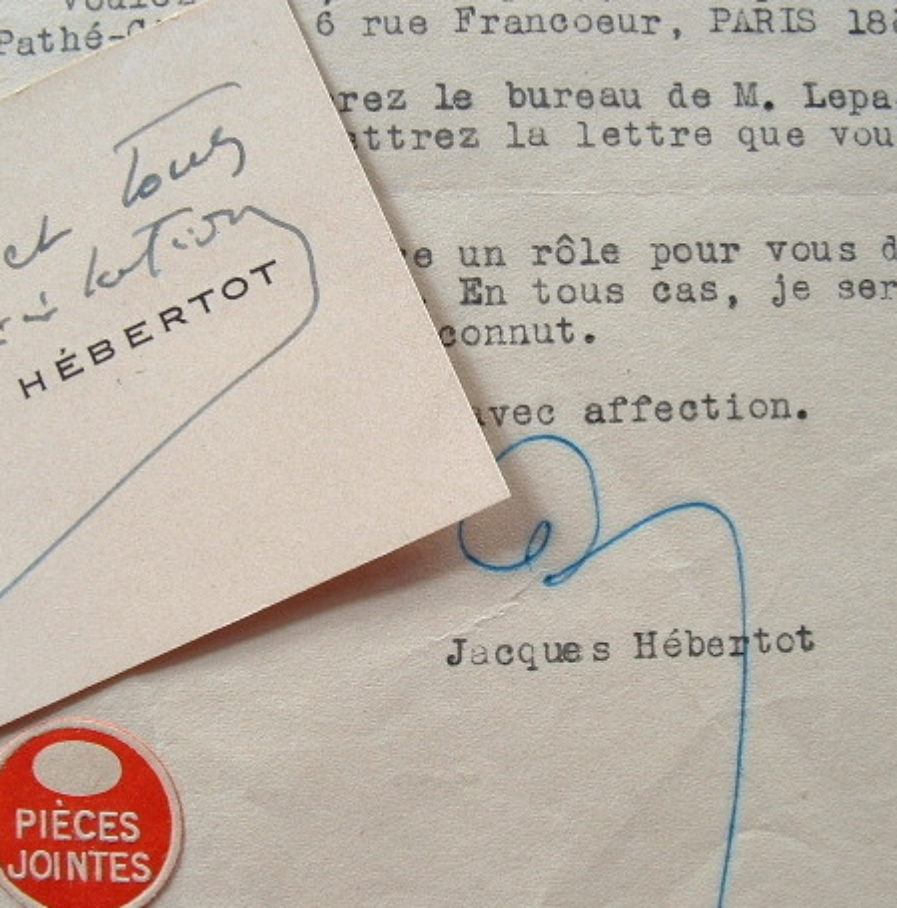 Pathé-
6 rue Francoeur, PARIS 18è
rez le bureau de M. Lepa
ettrez la lettre que vou
e un rôle pour vous d
. En tous cas, je ser
connut.
avec affection.
Jacques Hébertot
et tous
HÉBERTOT
PIÈCES
JOINTES